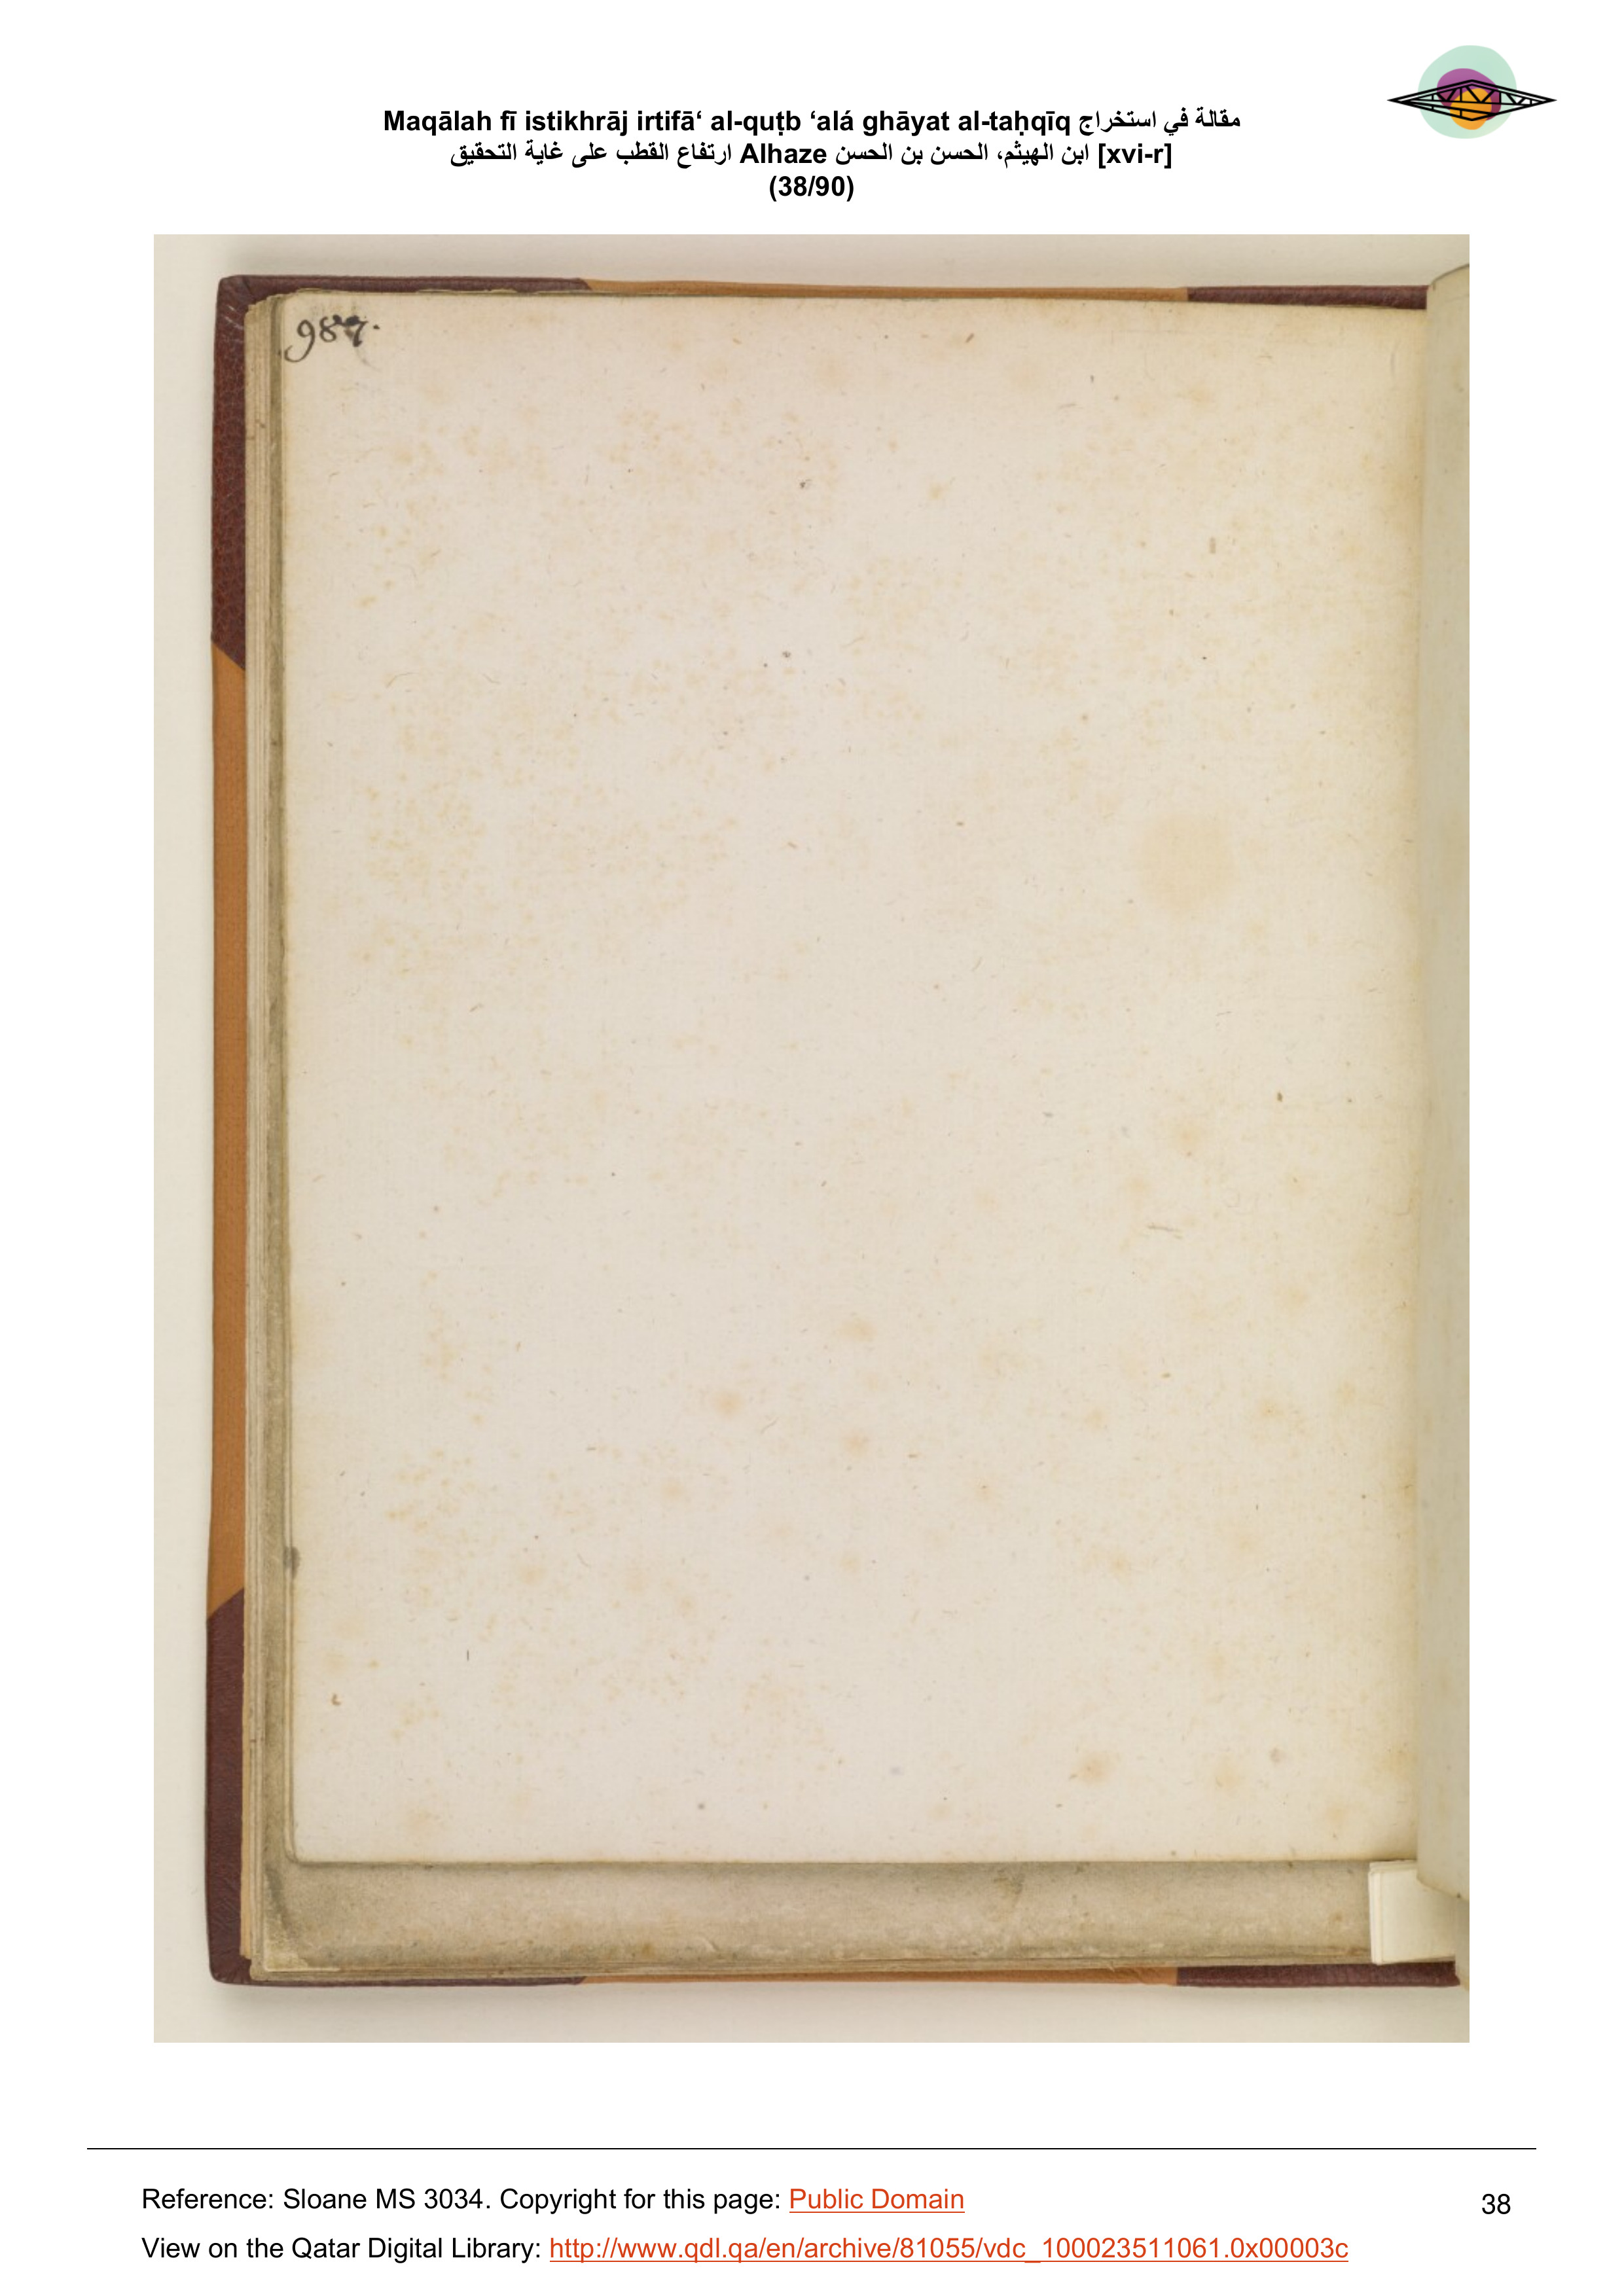 Maqālah fī istikhrāj irtifā‘ al-quṭb ‘alá ghāyat al-taḥqīq مقالة في استخراج
ارتفاع القطب على غاية التحقيق Alhaze ابن الهيثم، الحسن بن الحسن [xvi-r]
(38/90)
987.
Reference: Sloane MS 3034. Copyright for this page: Public Domain
38
View on the Qatar Digital Library: http://www.qdl.qa/en/archive/81055/vdc_100023511061.0x00003c